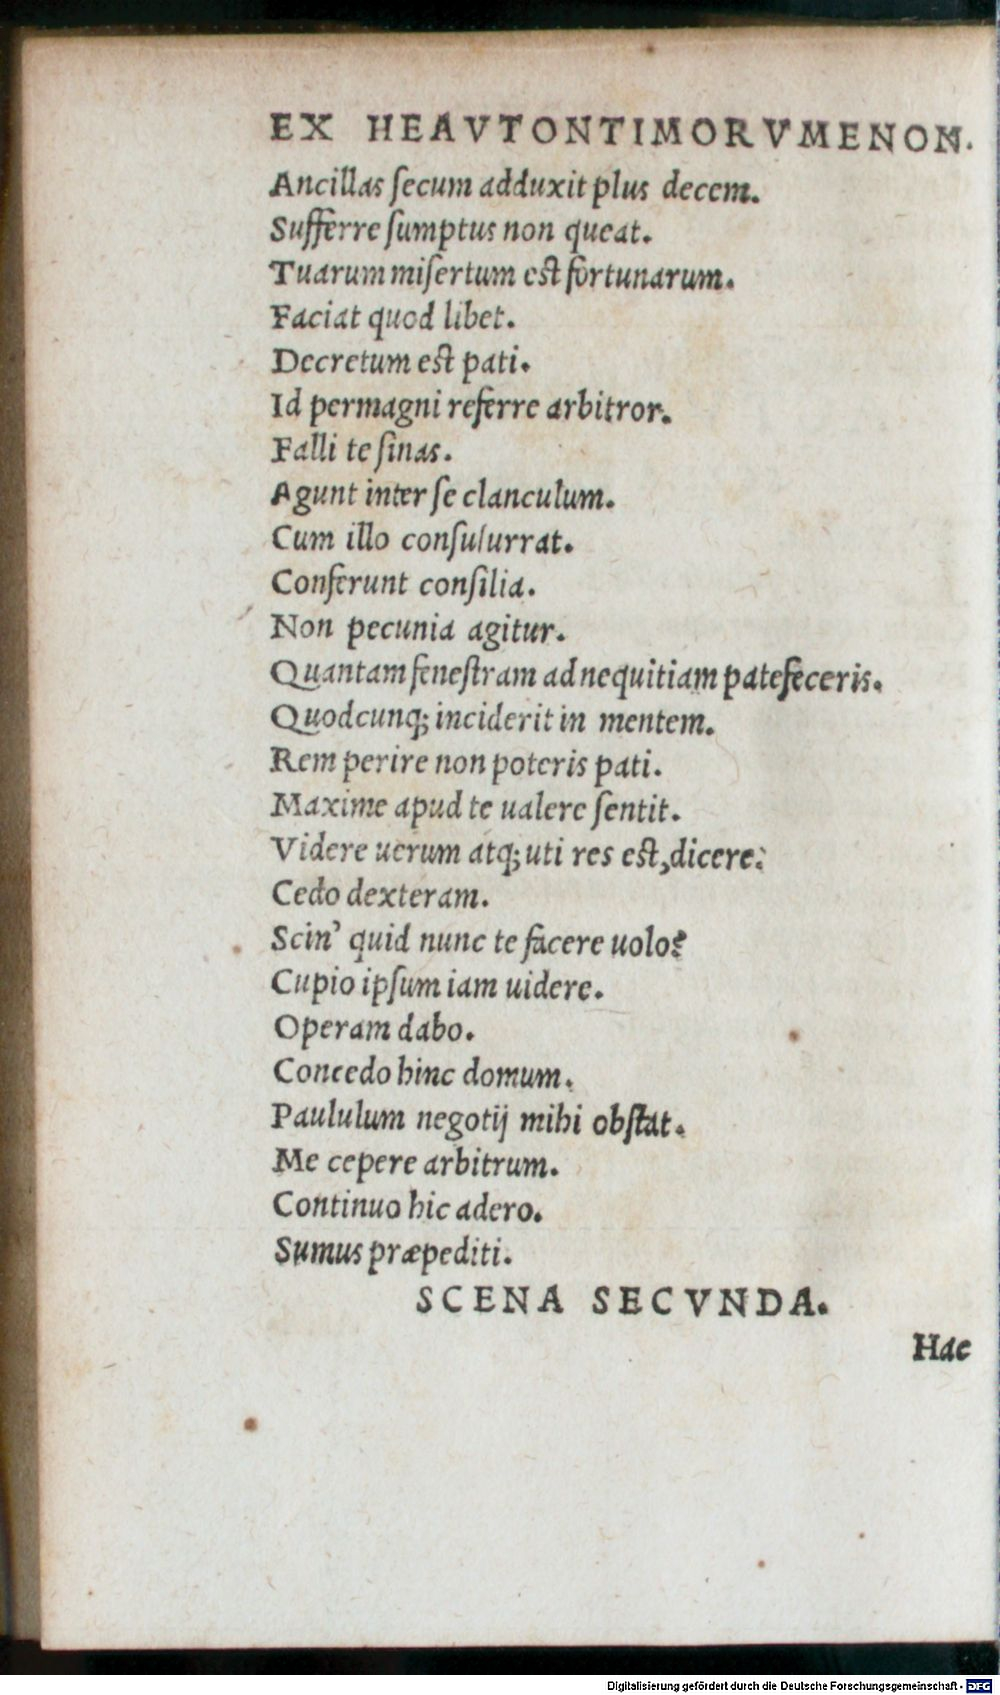 EX HEAVTONTIMORVMENON.
Ancillas ſecum adduxit plus decem.
Sufferre ſumptus non queat.
Tuarum miſertum est fortunarum.
Faciat quod libet.
Decretum est pati.
Id permagni referre arbitror.
Falli te ſinas.
Agunt inter ſe clanculum.
Cum illo conſuſurrat.
Conferunt conſilia.
Non pecunia agitur.
Quantam feneſtram ad nequitiam patefeceris.
Quodcunq; inciderit in mentem.
Rem perire non poteris pati.
Maxime apud te ualere ſentit.
Videre uerum atq; uti res est, dicere.
Cedo dexteram.
Scin' quid nunc te facere uolo?
Cupio ipſum iam uidere.
Operam dabo.
Concedo hinc domum.
Paululum negotij mihi obſtat.
Me cepere arbitrum.
Continuo hic adero.
Sumus præpediti.
SCENA SECVNDA.
Hac
Digitalisierung gefördert durch die Deutsche Forschungsgemeinschaft - DFG